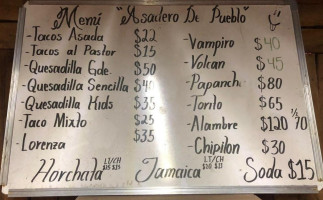 Menú "Asadero De Pueblo"
-Tacos Asada $22
-Tacos al Pastor $15
-Quesadilla Gde. $50
-Quesadilla Sencilla
-Quesadilla Kids $35
-Taco Mixto $25
-Lorenza $35
-Vampiro $40
-Volcan $45
-Papancha $80
-Torito $65
-Alambre $120 ½ 70
-Chipilon $30
Horchata LT/CH
Jamaica LT/CH
Soda $15